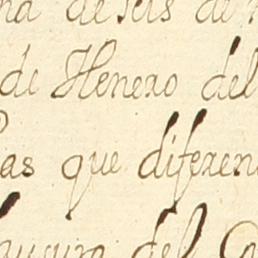 na de seis de
de Henero del
as que diferen
del